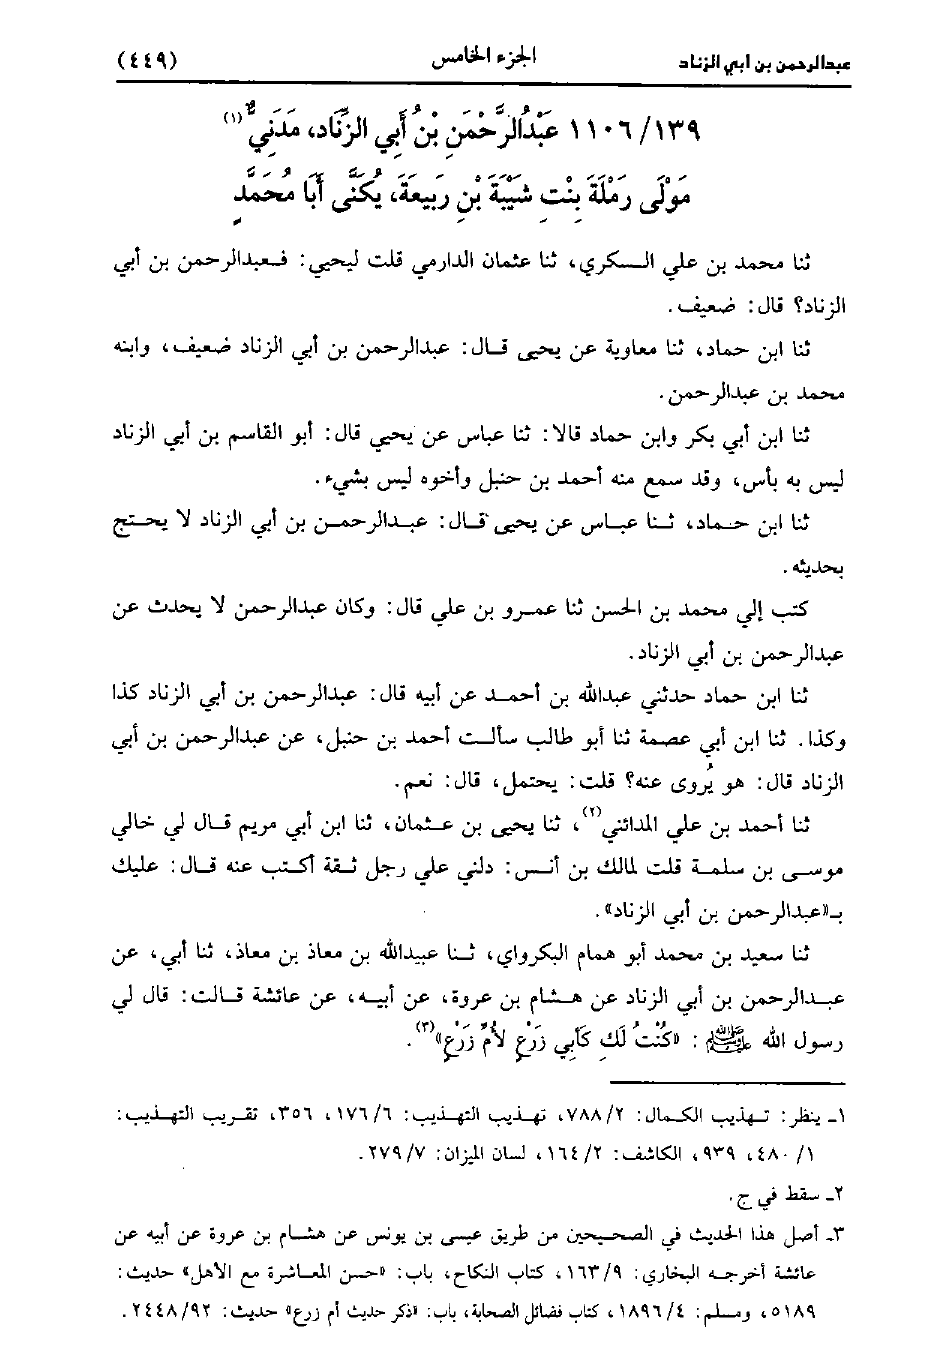 عبدالرحمن بن أبي الزناد الجزء الخامس (٤٤٩)
١١٠٦/١٣٩ عَبْدُالرَّحْمَنِ بْنُ أَبِي الزِّنَادِ، مَدَنِيٌّ(١)
مَوْلَى رَمْلَةَ بِنْتِ شَيْبَةَ بْنِ رَبِيعَةَ، يُكَنَّى أَبَا مُحَمَّدٍ
ثنا محمد بن علي السكري، ثنا عثمان الدارمي قلت ليحيى: فعبدالرحمن بن أبي
الزناد؟ قال: ضعيف.
ثنا ابن حماد، ثنا معاوية عن يحيى قال: عبدالرحمن بن أبي الزناد ضعيف، وابنه
محمد بن عبدالرحمن.
ثنا ابن أبي بكر وابن حماد قالا: ثنا عباس عن يحيى قال: أبو القاسم بن أبي الزناد
ليس به بأس، وقد سمع منه أحمد بن حنبل وأخوه ليس بشيء.
ثنا ابن حماد، ثنا عباس عن يحيى قال: عبدالرحمن بن أبي الزناد لا يحتج
بحديثه.
كتب إلي محمد بن الحسن ثنا عمرو بن علي قال: وكان عبدالرحمن لا يحدث عن
عبدالرحمن بن أبي الزناد.
ثنا ابن حماد حدثني عبدالله بن أحمد عن أبيه قال: عبدالرحمن بن أبي الزناد كذا
وكذا. ثنا ابن أبي عصمة ثنا أبو طالب سألت أحمد بن حنبل، عن عبدالرحمن بن أبي
الزناد قال: هو يُروى عنه؟ قلت: يحتمل، قال: نعم.
ثنا أحمد بن علي المدائني(٢)، ثنا يحيى بن عثمان، ثنا ابن أبي مريم قال لي خالي
موسى بن سلمة قلت لمالك بن أنس: دلني علي رجل ثقة أكتب عنه قال: عليك
بـ«عبدالرحمن بن أبي الزناد».
ثنا سعيد بن محمد أبو همام البكرواي، ثنا عبيدالله بن معاذ بن معاذ، ثنا أبي، عن
عبدالرحمن بن أبي الزناد عن هشام بن عروة، عن أبيه، عن عائشة قالت: قال لي
رسول الله ﷺ: «كُنْتُ لَكِ كَأَبِي زَرْعٍ لأُمِّ زَرْعٍ»(٣).
١ـ ينظر: تهذيب الكمال: ٧٨٨/٢، تهذيب التهذيب: ١٧٦/٦، ٣٥٦، تقريب التهذيب:
٤٨٠/١، ٩٣٩، الكاشف: ١٦٤/٢، لسان الميزان: ٢٧٩/٧.
٢ـ سقط في ج.
٣ـ أصل هذا الحديث في الصحيحين من طريق عيسى بن يونس عن هشام بن عروة عن أبيه عن
عائشة أخرجه البخاري: ١٦٣/٩، كتاب النكاح، باب: «حسن المعاشرة مع الأهل» حديث:
٥١٨٩، ومسلم: ١٨٩٦/٤، كتاب فضائل الصحابة، باب: «ذكر حديث أم زرع» حديث: ٢٤٤٨/٩٢.